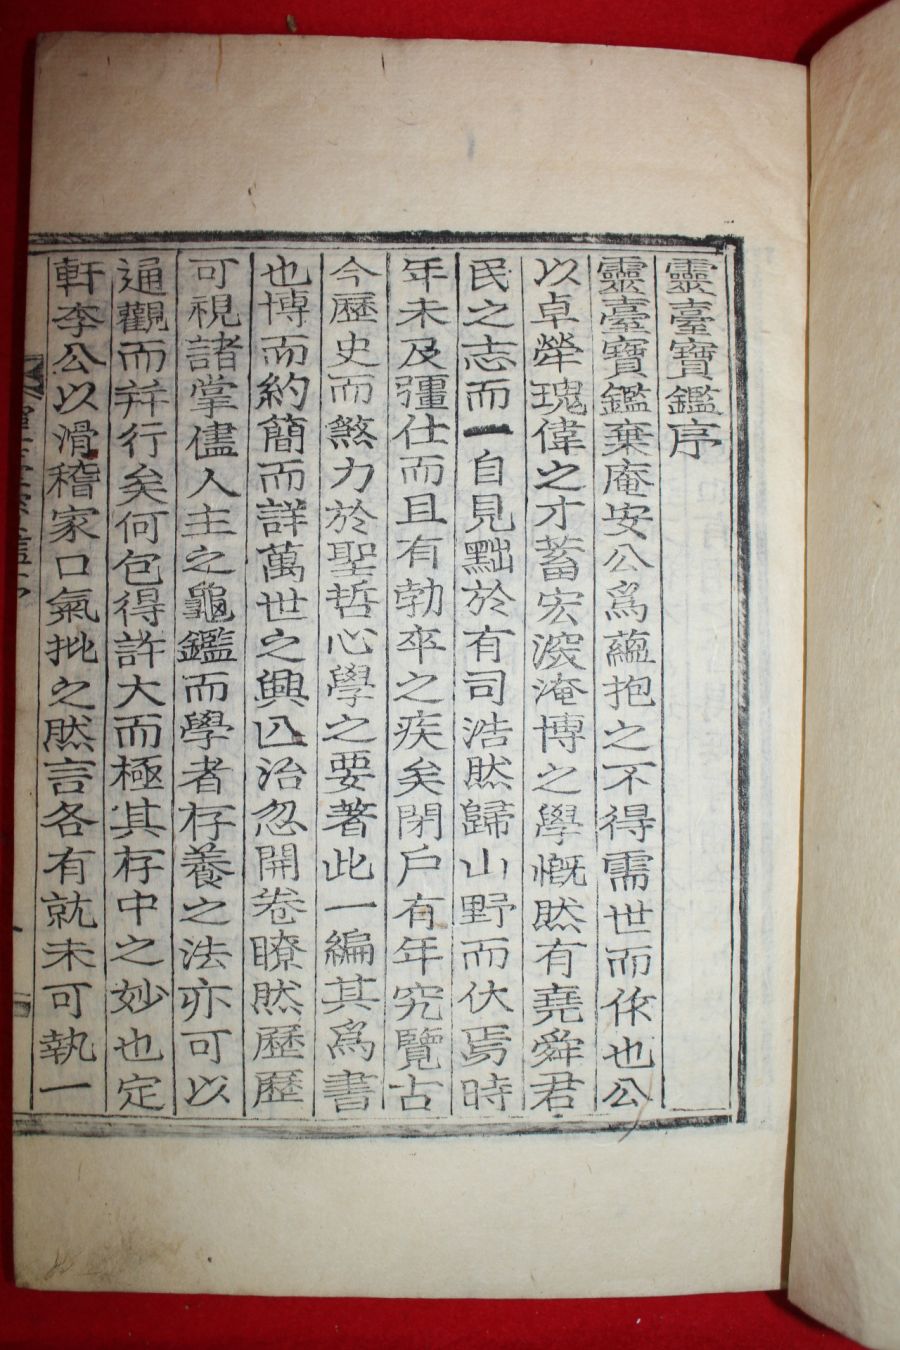 靈臺寶鑑序
靈臺寶鑑棄庵安公爲蘊抱之不得需世而作也公
以卓犖瑰偉之才蓄宏深淹博之學慨然有堯舜君
民之志而一自見黜於有司浩然歸山野而伏焉時
年未及彊仕而且有勃窣之疾矣閉戶有年究覽古
今歷史而煞力於聖哲心學之要著此一編其爲書
也博而約簡而詳萬世之興亾治忽開卷瞭然歷歷
可視諸掌儘人主之龜鑑而學者存養之法亦可以
通觀而幷行矣何包得許大而極其存中之妙也定
軒李公以滑稽家口氣批之然言各有就未可執一